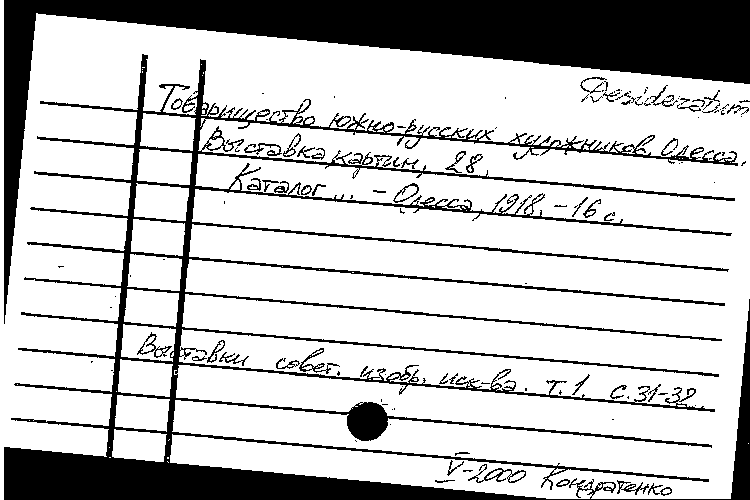 Desideratum
Товарищество южно-русских художников. Одесса.
Выставка картин, 28.
Каталог... - Одесса, 1918. - 16 с.
Выставки совет. изобр. иск-ва. т. 1. с. 31-32.
V-2000 Кондратенко